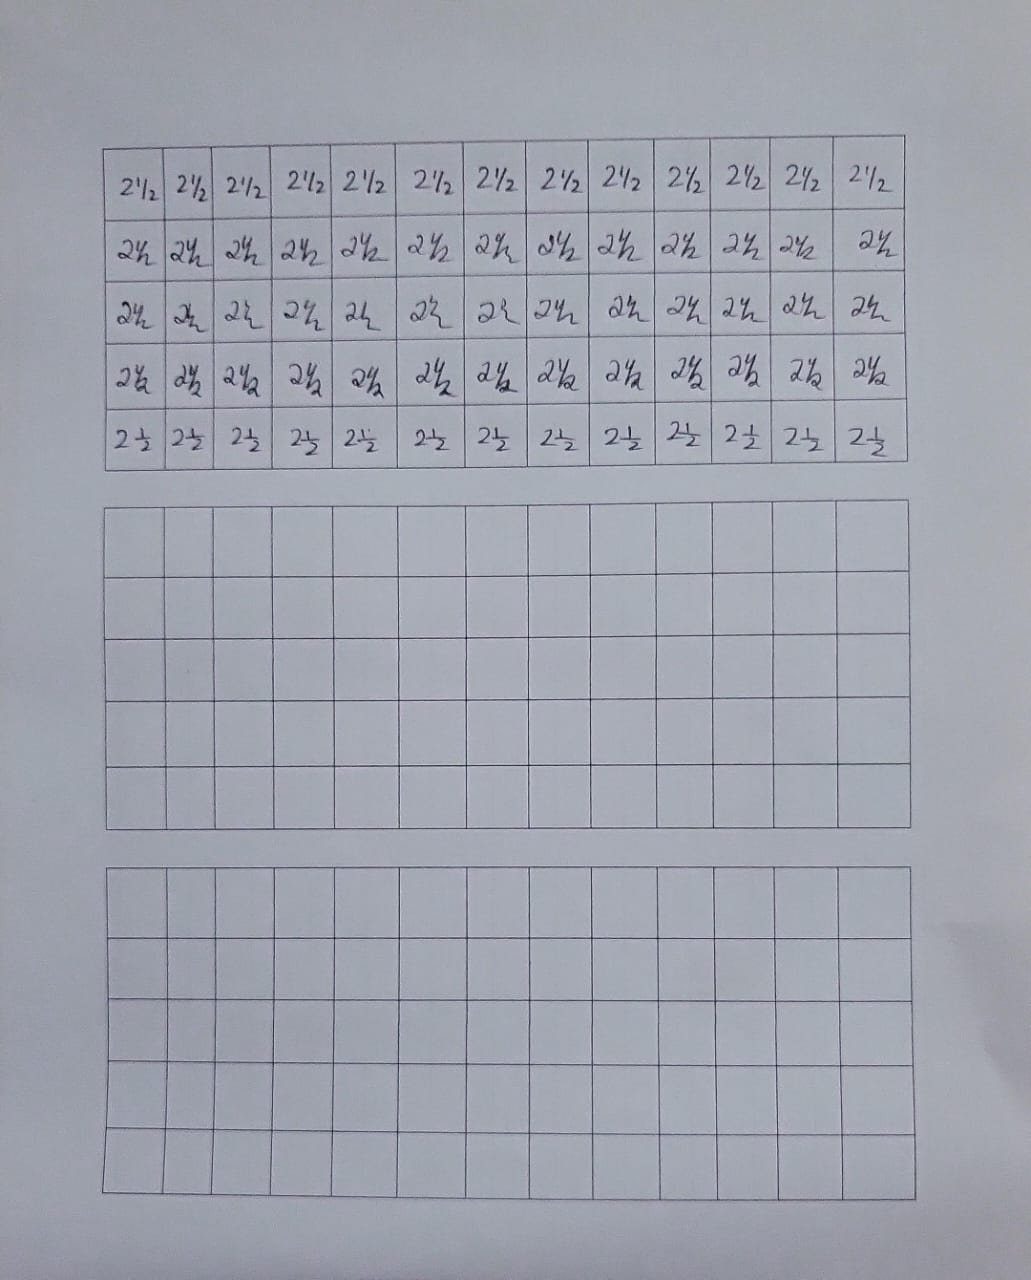 2 1/2 2 1/2 2 1/2 2 1/2 2 1/2 2 1/2 2 1/2 2 1/2 2 1/2 2 1/2 2 1/2 2 1/2 2 1/2
2 1/2 2 1/2 2 1/2 2 1/2 2 1/2 2 1/2 2 1/2 2 1/2 2 1/2 2 1/2 2 1/2 2 1/2 2 1/2
2 1/2 2 1/2 2 1/2 2 1/2 2 1/2 2 1/2 2 1/2 2 1/2 2 1/2 2 1/2 2 1/2 2 1/2 2 1/2
2 1/2 2 1/2 2 1/2 2 1/2 2 1/2 2 1/2 2 1/2 2 1/2 2 1/2 2 1/2 2 1/2 2 1/2 2 1/2
2 1/2 2 1/2 2 1/2 2 1/2 2 1/2 2 1/2 2 1/2 2 1/2 2 1/2 2 1/2 2 1/2 2 1/2 2 1/2